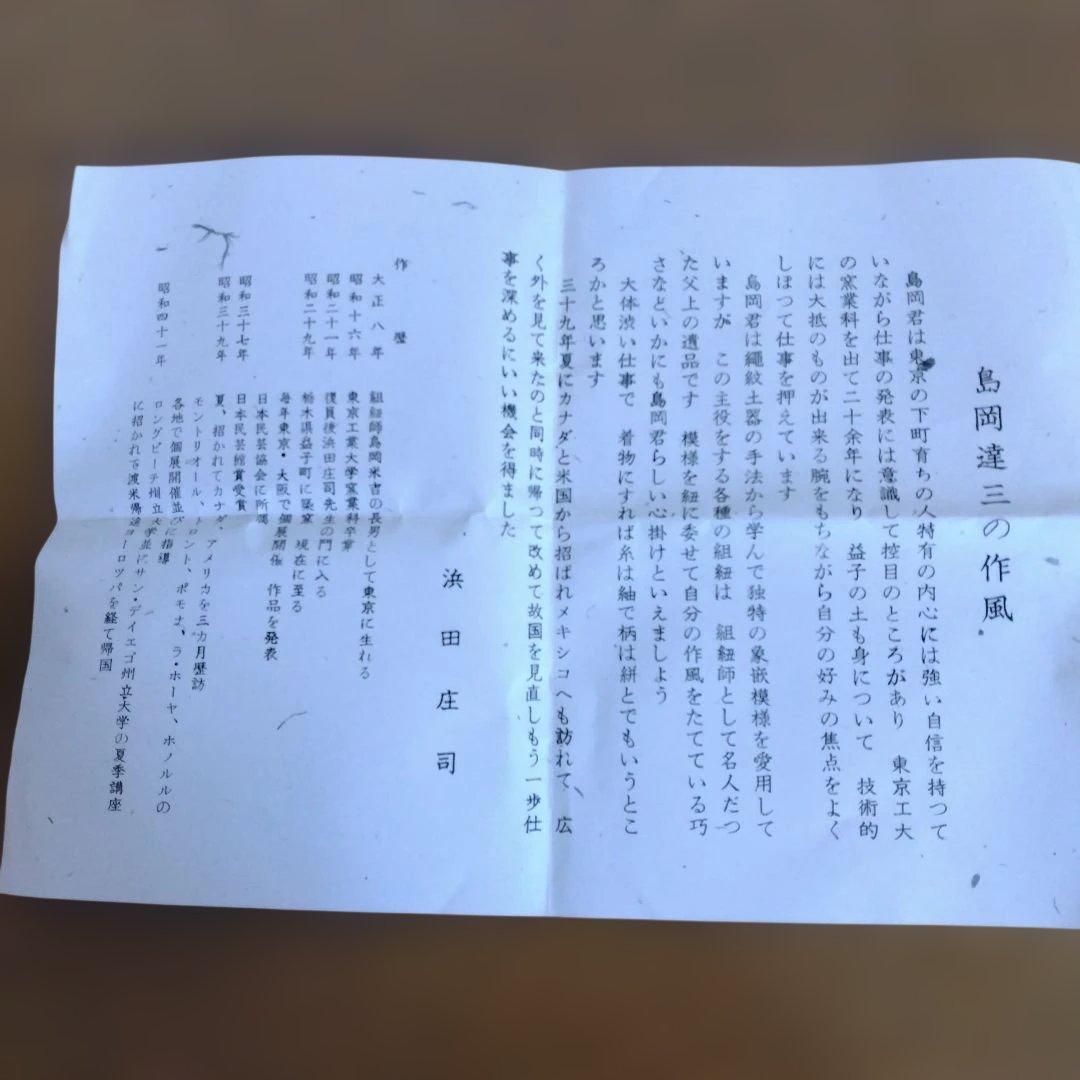 島岡達三の作風
島岡君は東京の下町育ちの人特有の内心には強い自信を持つて
いながら仕事の発表には意識して控目のところがあり　東京工大
の窯業科を出て二十余年になり　益子の土も身について　技術的
には大抵のものが出来る腕をもちながら自分の好みの焦点をよく
しぼつて仕事を押えています
島岡君は縄紋土器の手法から学んで独特の象嵌模様を愛用して
いますが　この主役をする各種の組紐は　組紐師として名人だつ
た父上の遺品です　模様を紐に委せて自分の作風をたてている巧
さなどいかにも島岡君らしい心掛けといえましよう
大体渋い仕事で　着物にすれば糸は紬で柄は絣とでもいうとこ
ろかと思います
三十九年夏にカナダと米国から招ばれメキシコへも訪れて　広
く外を見て来たのと同時に帰つて改めて故国を見直しもう一歩仕
事を深めるにいい機会を得ました
浜田庄司
作歴
大正八年　組紐師島岡米吉の長男として東京に生れる
昭和十六年　東京工業大学窯業科卒業
昭和二十一年　復員後浜田庄司先生の門に入る
昭和二十九年　栃木県益子町に築窯　現在に至る
毎年東京・大阪で個展開催　作品を発表
日本民芸協会に所属
昭和三十七年　日本民芸館賞受賞
昭和三十九年　夏、招かれてカナダ・アメリカを三カ月歴訪
モントリオール、トロント、ポモナ、ラ・ホーヤ、ホノルルの
各地で個展開催並びに指導
昭和四十一年　ロングビーチ州立大学並にサン・デイエゴ州立大学の夏季講座
に招かれて渡米帰途ヨーロツパを経て帰国